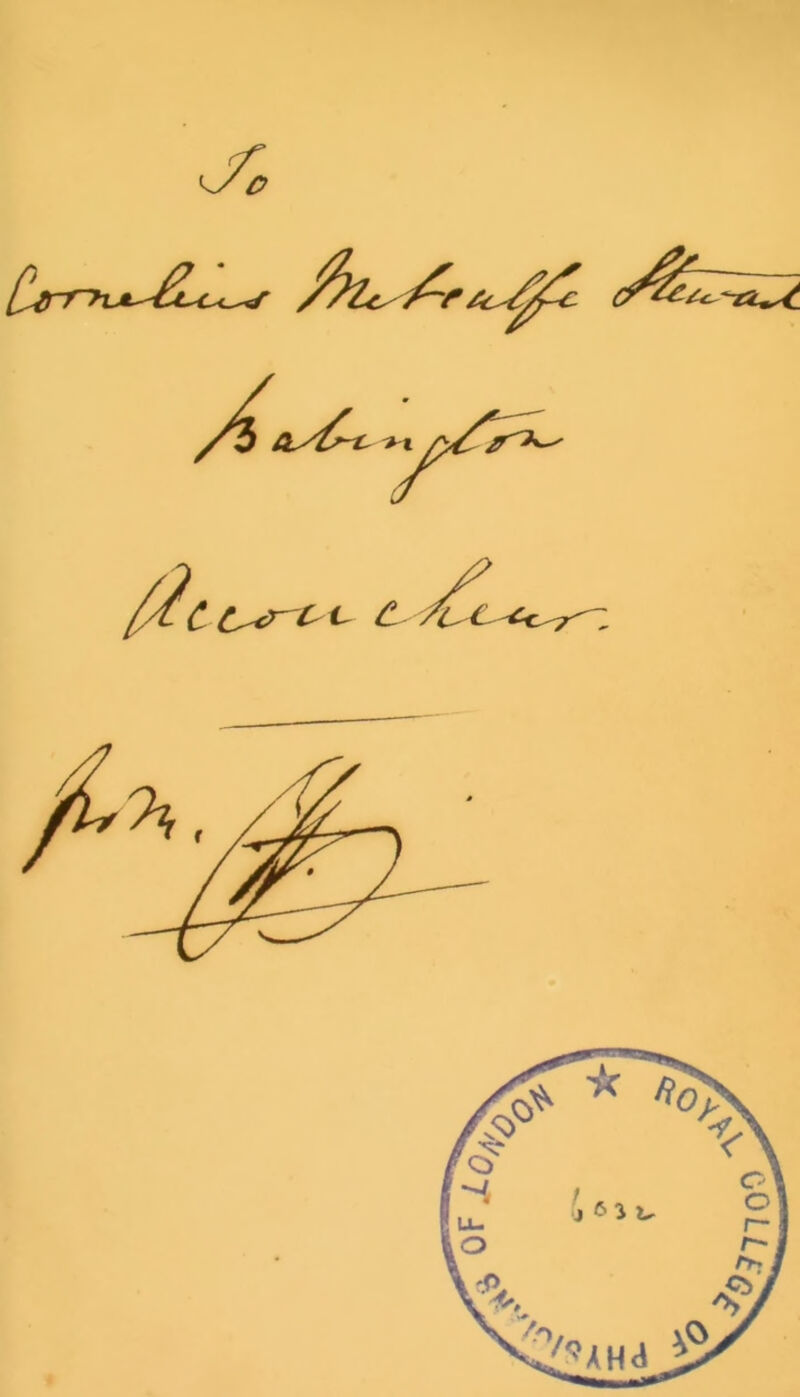 To
Cornelius Metcalfe Stewart
Babington
Accoucheur.
from.
ROYAL COLLEGE OF PHYSICIANS OF LONDON